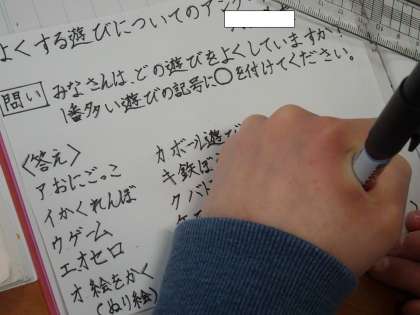 よくする遊びについてのアン
問い みなさんは、どの遊びをよくしていますか?
1番多い遊びの記号に○を付けてください。
<答え>
ア おにごっこ
イ かくれんぼ
ウ ゲーム
エ オセロ
オ 絵をかく
(ぬり絵)
カ ボール遊び
キ 鉄ぼ
ク バド